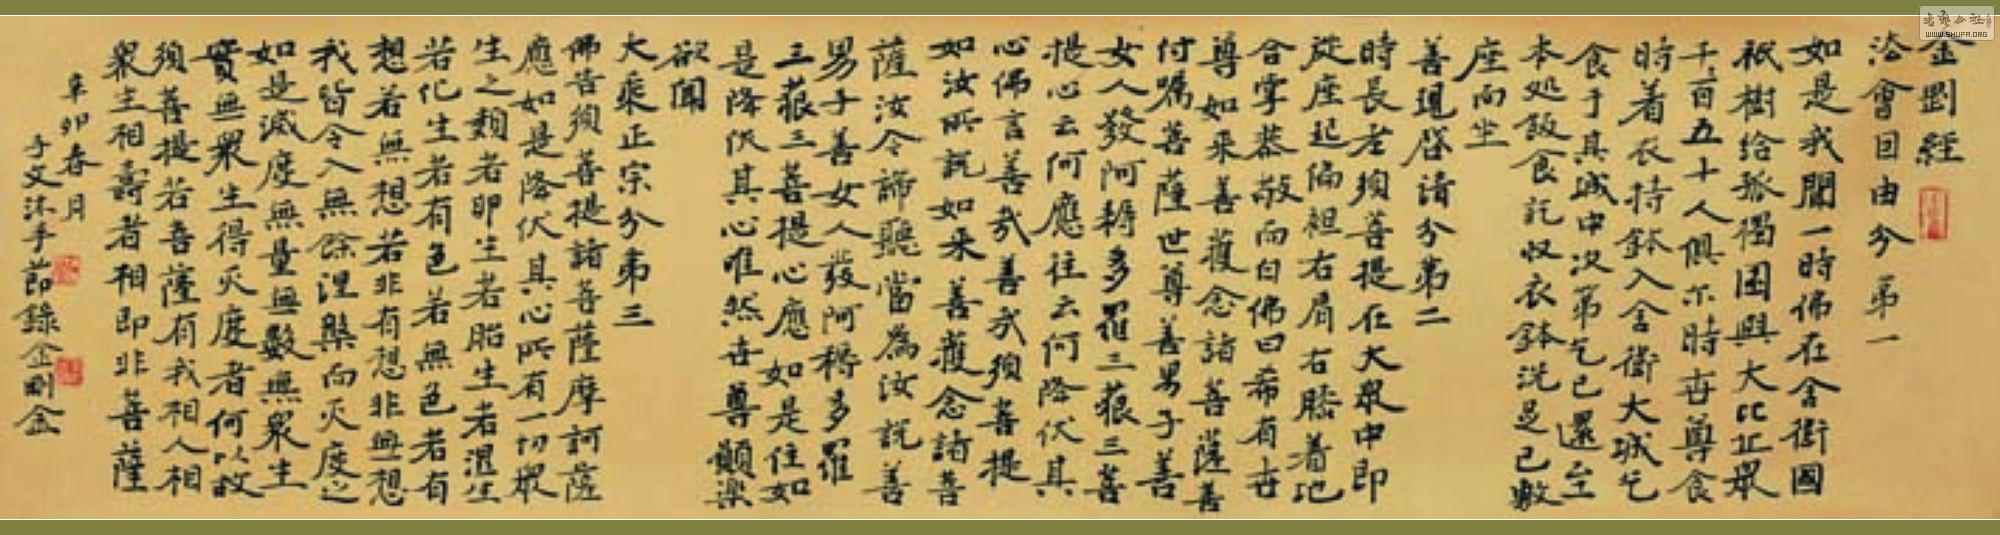 金剛經
法會因由分第一
如是我聞一時佛在舍衛國
祇樹給孤獨園與大比丘眾
千二百五十人俱尔時世尊食
時着衣持鉢入舍衛大城乞
食于其城中次第乞已還至
本処飯食訖收衣鉢洗足已敷
座而坐
善現啓請分第二
時長老須菩提在大眾中即
從座起偏袒右肩右膝着地
合掌恭敬而白佛曰希有世
尊如来善護念諸菩薩善
付囑菩薩世尊善男子善
女人發阿耨多羅三藐三菩
提心云何應住云何降伏其
心佛言善哉善哉須菩提
如汝所説如来善護念諸菩
薩汝今諦聽當為汝説善
男子善女人發阿耨多羅
三藐三菩提心應如是住如
是降伏其心唯然世尊願樂
欲聞
大乘正宗分第三
佛告須菩提諸菩薩摩訶薩
應如是降伏其心所有一切眾
生之類若卵生若胎生若濕生
若化生若有色若無色若有
想若無想若非有想非無想
我皆令入無餘涅槃而灭度之
如是滅度無量無數無眾生
實無眾生得灭度者何以故
須菩提若菩薩有我相人相
眾生相壽者相即非菩薩
辛卯春月
子文沐手節錄金剛金
書藝公社
WWW.SHUFA.ORG